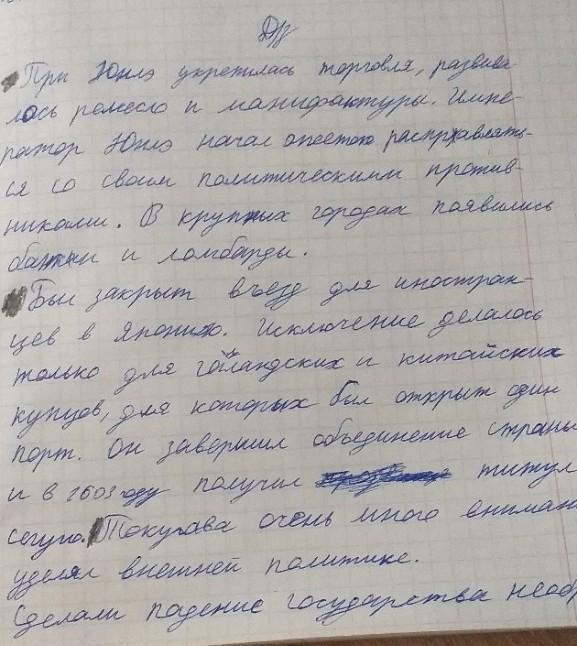 Др
При Юнлэ укрепилась торговля, развива-
лось ремесло и мануфактуры. Импе-
ратор Юнлэ начал жестоко расправлять-
ся со своим политическими против-
никами. В крупных городах появились
банки и ломбарды.
Был закрыт въезд для иностран-
цев в Японию. Исключение делалось
только для голландских и китайских
купцов, для которых был открыт один
порт. Он завершил объединение страны
и в 1603 году получил титул
сегуна. Токугава очень много вниман
уделял внешней политике.
Сделали падение государства необр